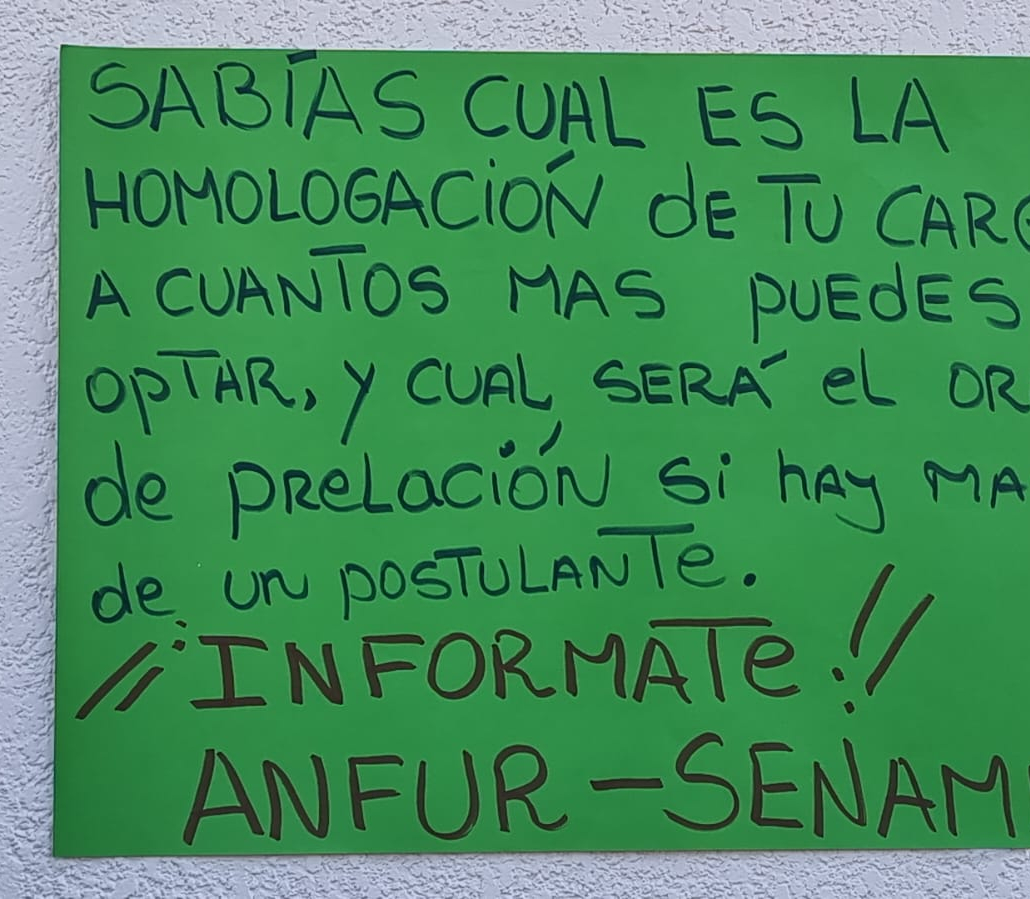 SABÍAS CUAL ES LA
HOMOLOGACIÓN dE TU CARG
A CUANTOS MAS PUEdES
OPTAR, y CUAL SERÁ eL OR
de PReLaCIÓN Si hAy MA
de un POSTULANTe.
¡¡INFORMATe!!
ANFUR-SENAM